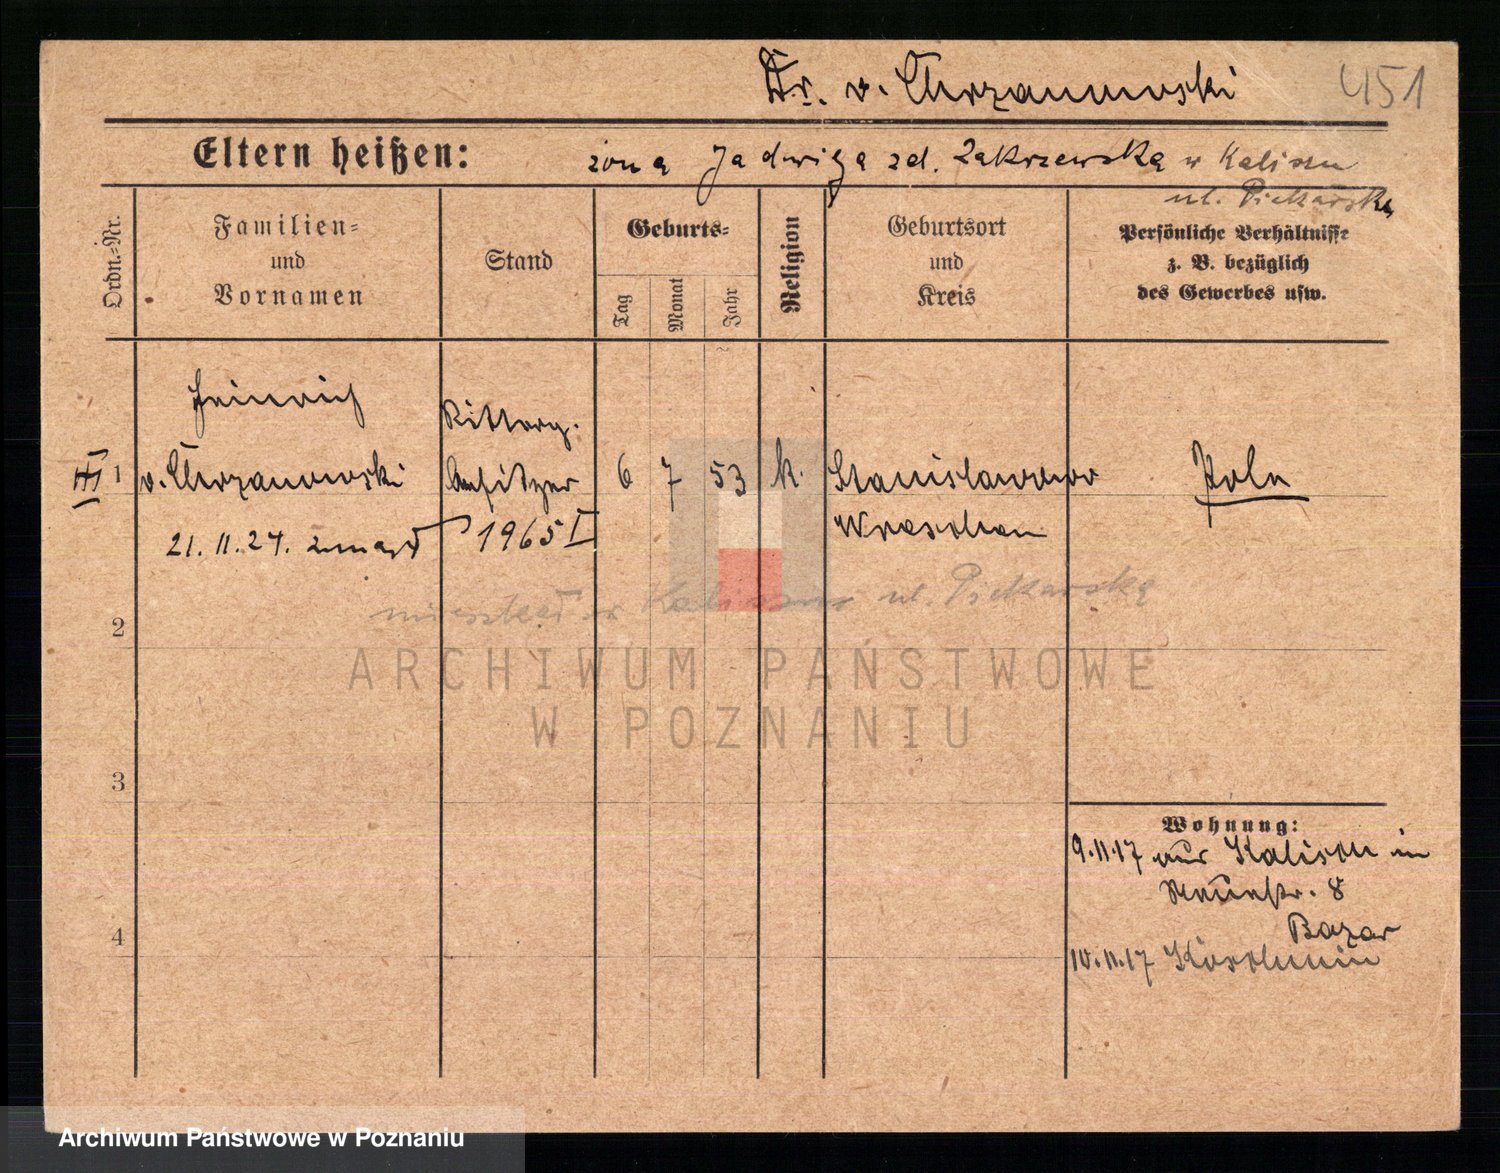 Dr. v. Chrzanowski
451
Eltern heißen:
żona Jadwiga zd. Zakrzewska w Kaliszu
ul. Piekarska
Ordn.-Nr.
Familien-
und
Vornamen
Stand
Geburts-
Tag
Monat
Jahr
Religion
Geburtsort
und
Kreis
Persönliche Verhältnisse
z. B. bezüglich
des Gewerbes usw.
Heinrich
Ritterg.
III 1 v. Chrzanowski
besitzer
6 7 53 k.
Stanislawowo
Wreschen
Pole
21. 11. 27. zmarł
1965 I
mieszkał w Kaliszu ul. Piekarska
2
ARCHIWUM PAŃSTWOWE
W POZNANIU
3
4
Wohnung:
9.11.17 aus Kalisch in
Neuestr. 8
Bazar
10.11.17 Koschmin
Archiwum Państwowe w Poznaniu